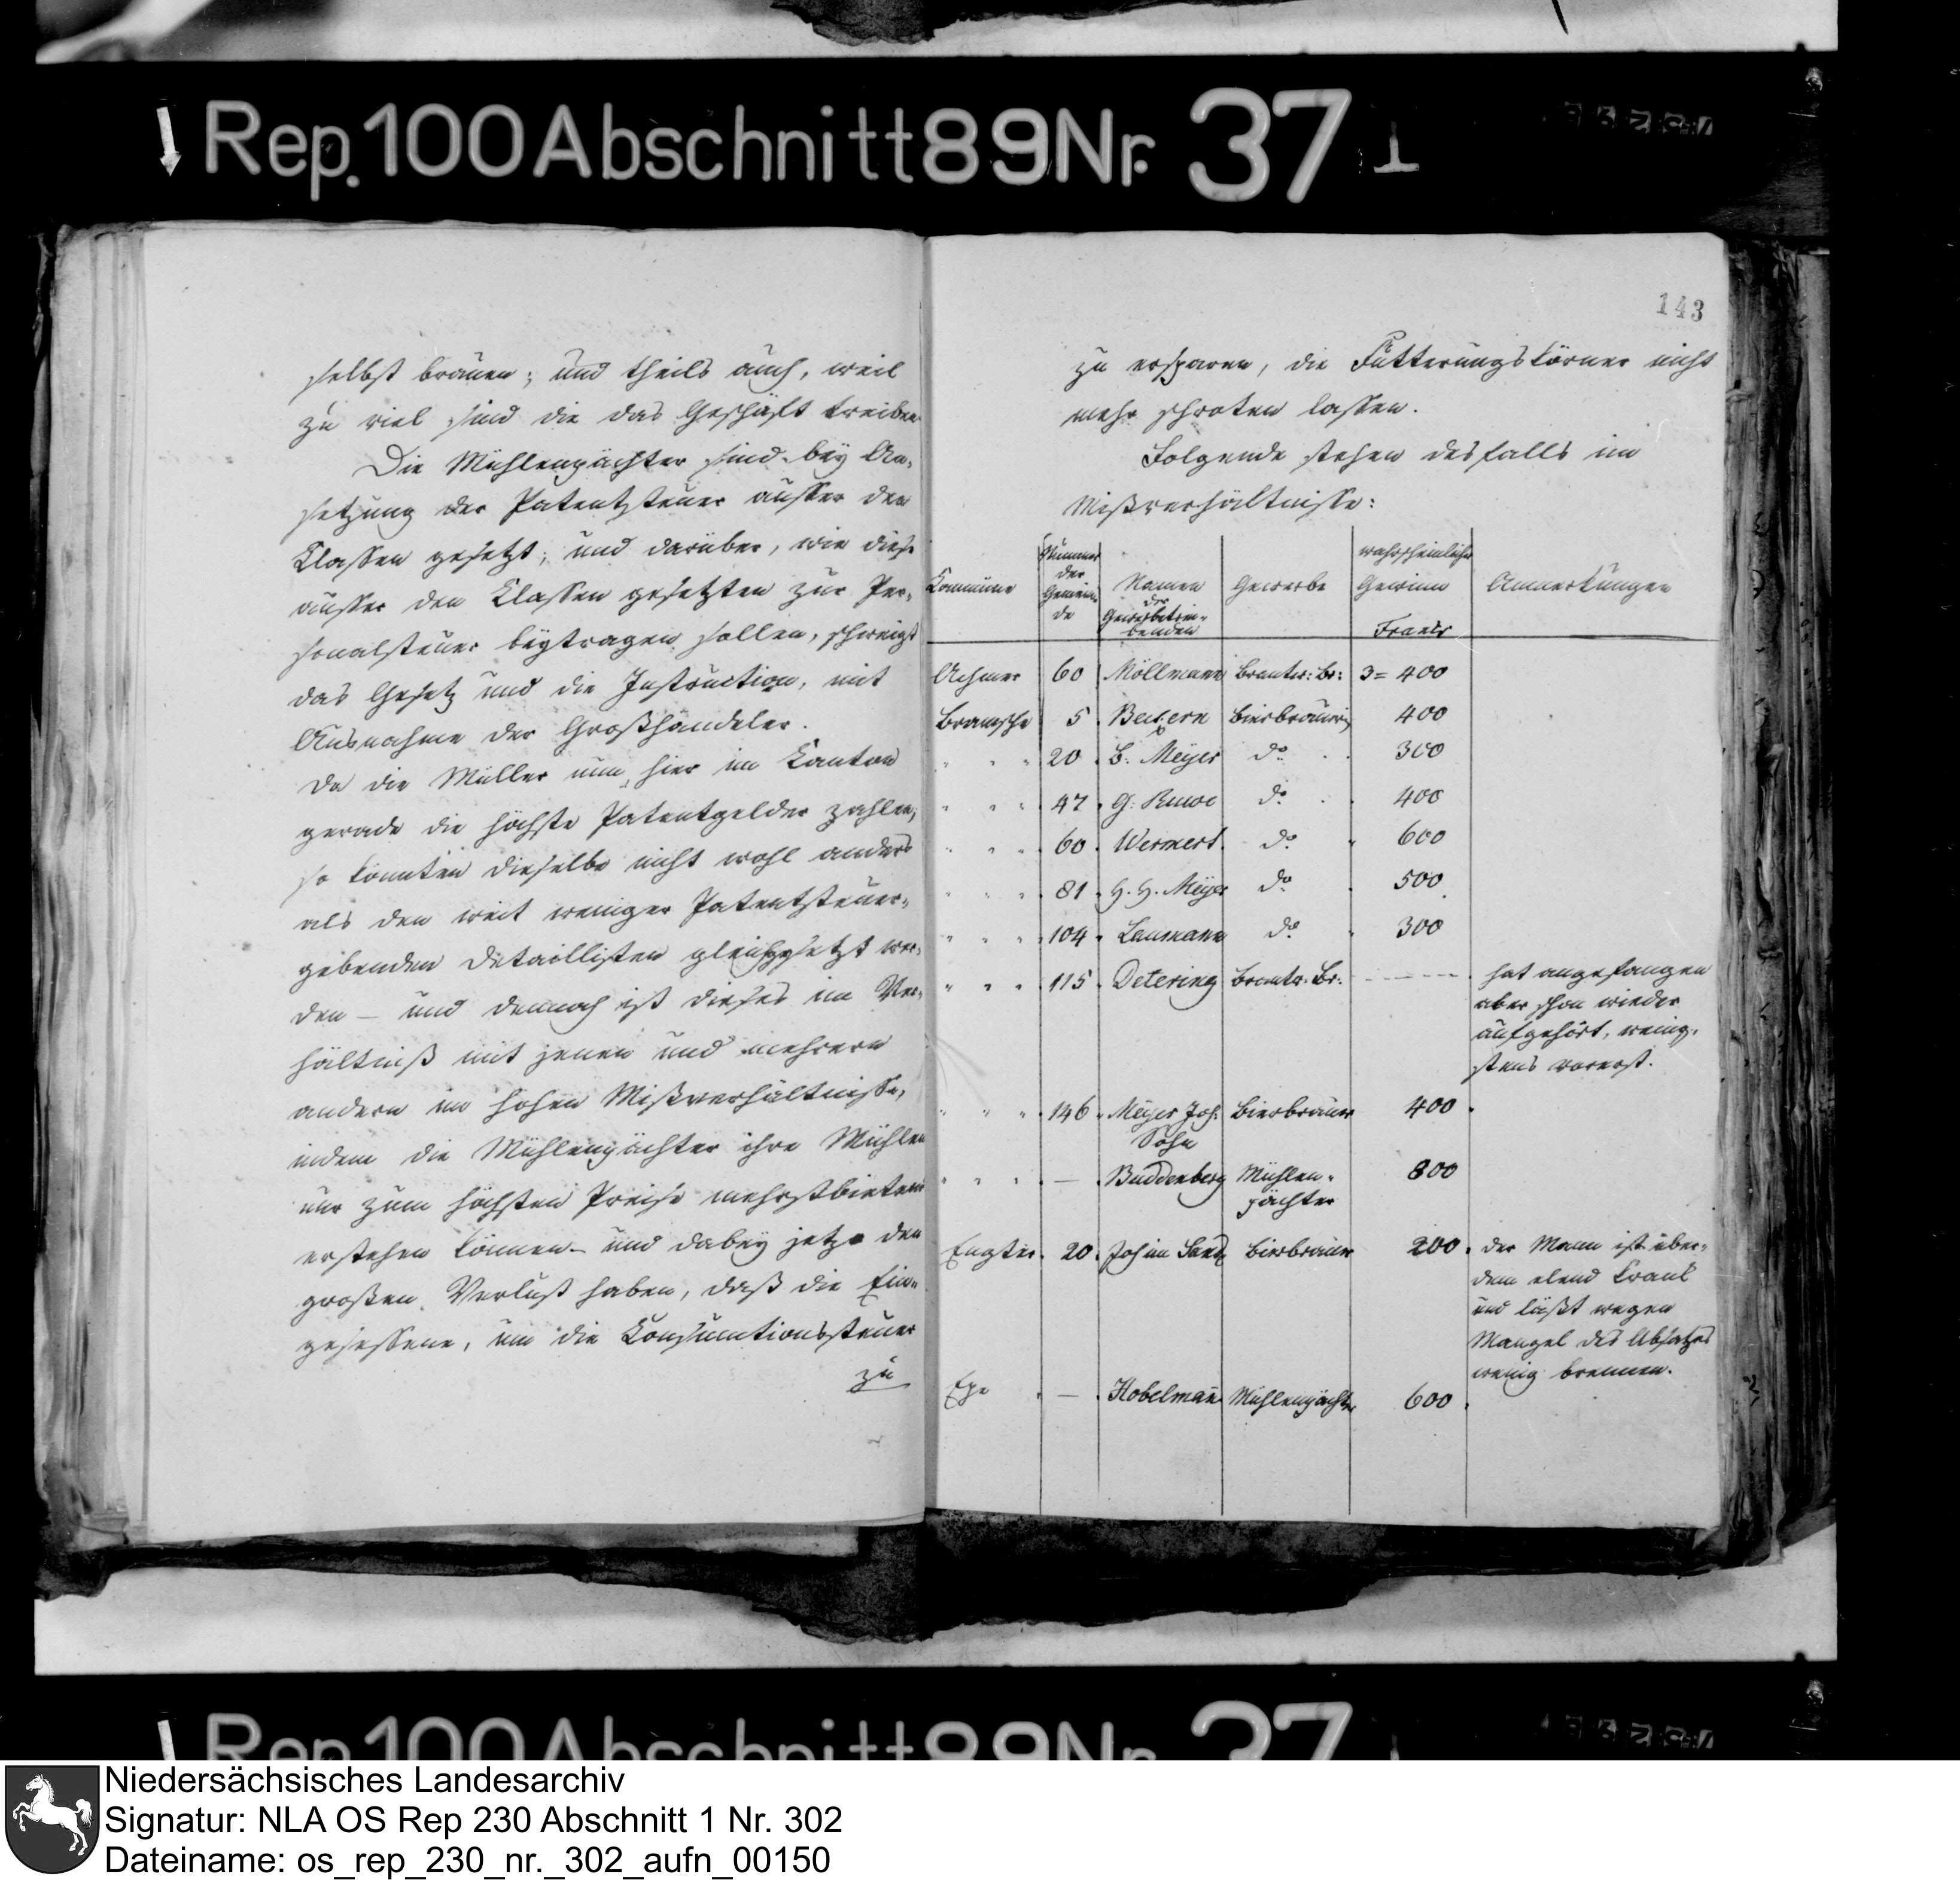 Rep. 100 Abschnitt 89 Nr. 37 I
selbst brauen; und theils auch, weil
zu viel sind die das Geschäft treiben.
Die Mühlenpächter sind bey An-
setzung der Patentsteuer ausser den
Classen gesetzt; und darüber, wie diese
ausser den Classen gesetzten zur Per-
sonalsteuer beytragen sollen, schweigt
das Gesetz und die Instruction, mit
Ausnahme der Großhändeler.
Da die Müller nun hier im Canton
gerade die höchste Patentgelder zahlen,
so konnten dieselbe nicht wohl anders
als den weit weniger Patentsteuer-
gebenden Detaillisten gleichgesetzt wer-
den – und dennoch ist dieses im Ver-
hältniß mit jenen und mehrern
andern im hohen Mißverhältnisse,
indem die Mühlenpächter ihre Mühlen
nur zum höchsten Preise mehrstbietend
erstehen können – und dabey jetzo den
großen Verlust haben, daß die Ein-
gesessene, um die Consumtionssteuer
zu
143
zu ersparen, die Futterungskörner nicht
mehr schroten lassen.
Folgende stehen desfalls im
Mißverhältnisse:
Commune | Nummer der Gemeinde | Namen der Gewerbetreibenden | Gewerbe | wahrscheinlicher Gewinn Francs | Anmerkungen
Achmer 60 Möllmann Brantw: Br: 3 = 400
Bramsche 5 Bierbrauerey 400
" " " 20 B. Meyer do 300
" " " 47 G. Ruwe do 400
" " " 60 Wermert do 600
" " " 81 H. H. Meyer do 500
" " " 104 Laumann do 300
" " " 115 Detering Brantw. Br: ---- hat angefangen
aber schon wieder
aufgehört, wenig-
stens vorerst.
" " " 146 Meyer Joh. Bierbrauer 400
Sohn
" " " — Buddenberg Mühlen- 800
pächter
Engter 20 Johan Bierbrauer 200 der Mann ist über-
dem elend krank
und läßt wegen
Mangel des Absatzes
wenig brennen.
Epe — Hobelmann Mühlenpächter 600
Rep. 100 Abschnitt 89 Nr. 37
Niedersächsisches Landesarchiv
Signatur: NLA OS Rep 230 Abschnitt 1 Nr. 302
Dateiname: os_rep_230_nr._302_aufn_00150